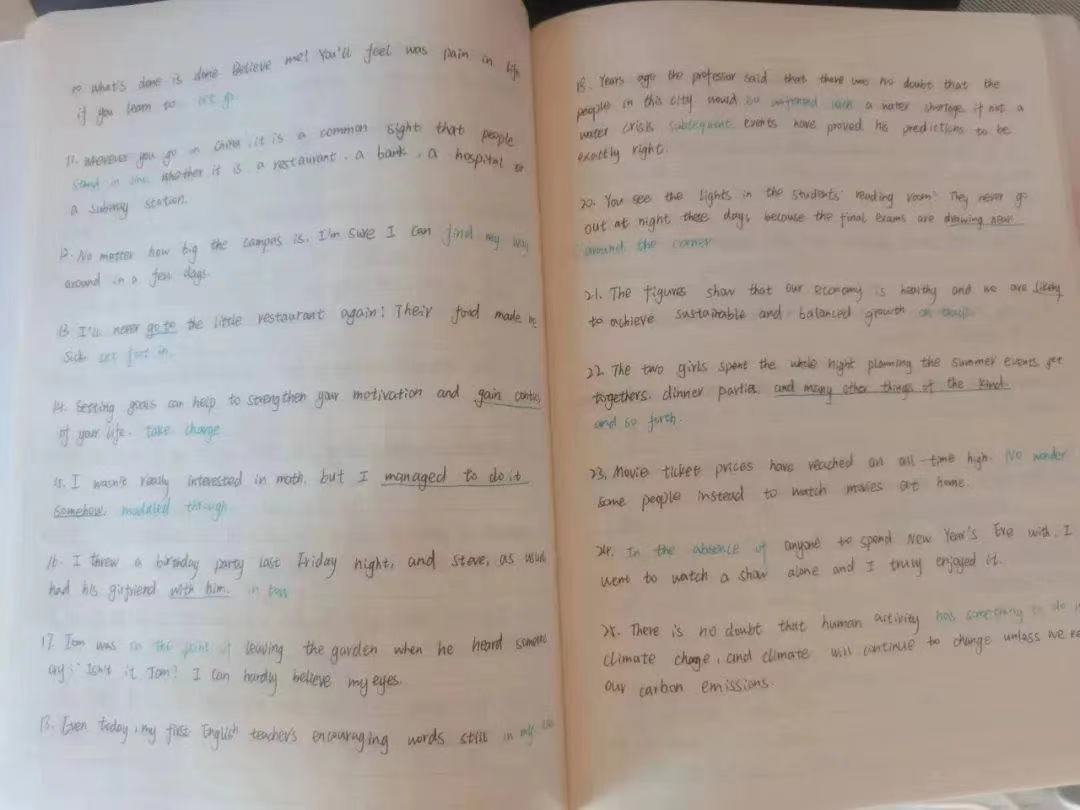 10. What's done is done. Believe me! You'll feel was pain in life
if you learn to let go.
11. Wherever you go in China, it is a common sight that people
stand in line whether it is a restaurant, a bank, a hospital or
a subway station.
12. No matter how big the campus is, I'm sure I can find my way
around in a few days.
13 I'll never go to the little restaurant again! Their food made me
sick set foot in.
14. Setting goals can help to strengthen your motivation and gain control
of your life. take charge
15. I wasn't really interested in math, but I managed to do it
somehow. muddled through
16. I threw a birthday party last Friday night, and Steve, as usual
had his girlfriend with him. in tow
17. Tom was on the point of leaving the garden when he heard someone
cry: "Isn't it Tom? I can hardly believe my eyes.
18. Even today, my first English teacher's encouraging words still in my
Years ago the professor said that there was no doubt that the
people in this city would be confronted with a water shortage if not a
water crisis subsequent events have proved his predictions to be
exactly right.
20. You see the lights in the students' reading room? They never go
out at night these days because the final exams are drawing near
around the corner
21. The figures show that our economy is healthy and we are likely
to achieve sustainable and balanced growth on track
22. The two girls spent the whole night planning the summer events get
togethers. dinner parties. and many other things of the kind.
and so forth.
23, Movie ticket prices have reached an all-time high. No wonder
some people instead to watch movies at home.
24. In the absence of anyone to spend New Year's Eve with, I
went to watch a show alone and I truly enjoyed it.
25. There is no doubt that human activity has something to do
climate change, and climate will continue to change unless we
our carbon emissions.